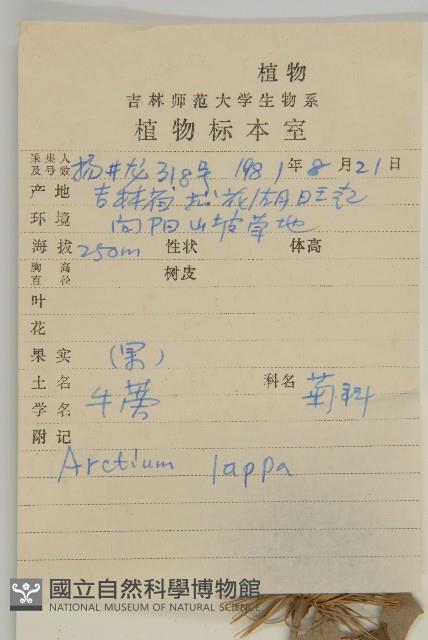 植物
吉林师范大学生物系
植物标本室
采集人及号数 杨井龙 318号 1981年8月21日
产地 吉林省松花湖旺起
环境 向阳山坡草地
海拔 250m 性状 体高
胸高直径 树皮
叶
花
果实 (果)
土名 牛蒡 科名 菊科
学名
附记
Arctium lappa
國立自然科學博物館
NATIONAL MUSEUM OF NATURAL SCIENCE